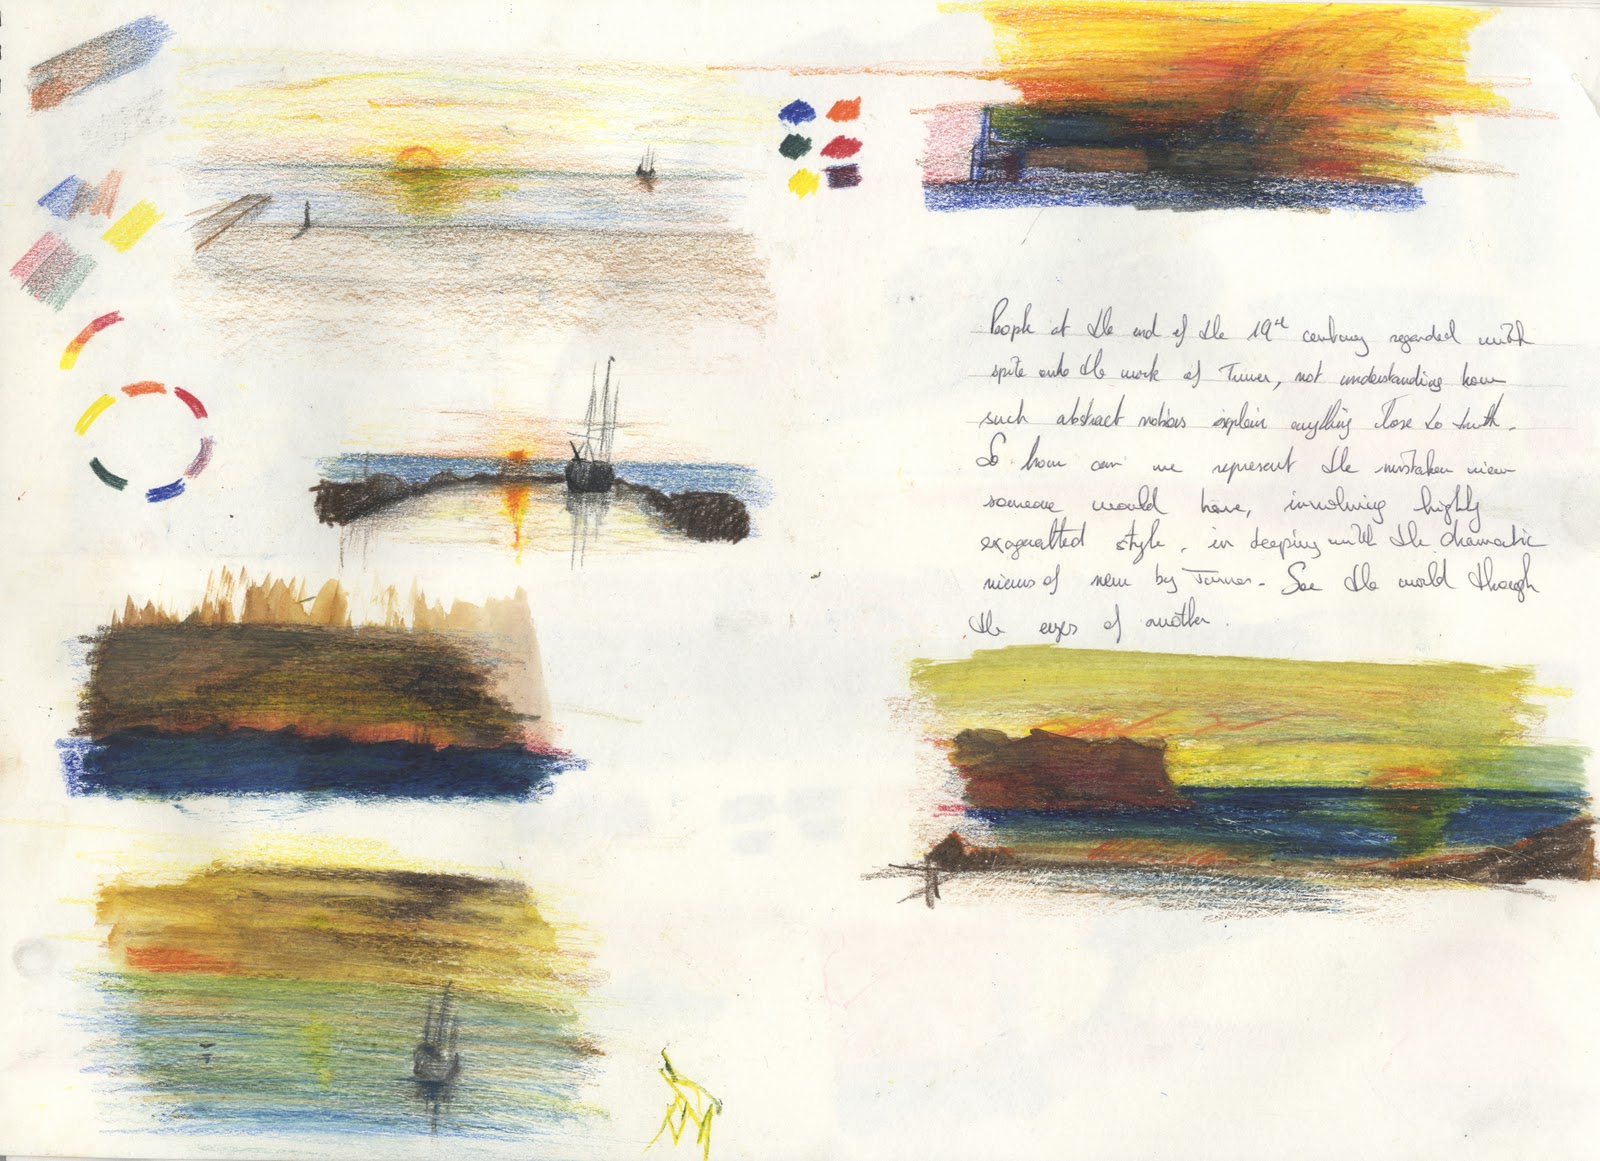 People at the end of the 19th century regarded with
spite onto the work of Turner, not understanding how
such abstract notions explain anything close to truth.
So how can we represent the mistaken view
someone would have, involving highly
style, in keeping with the dramatic
views of new by Turner. See the world though
the eyes of another.